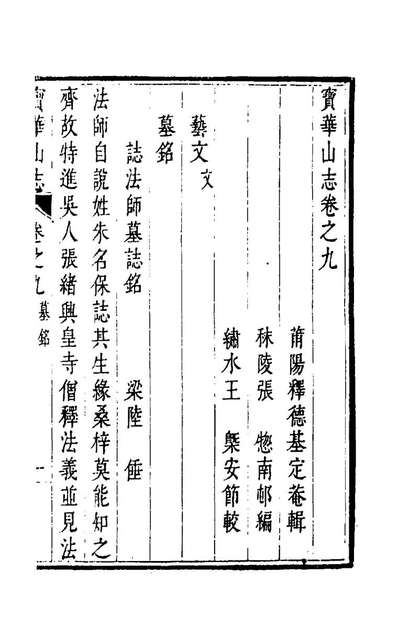 寶華山志卷之九
莆陽釋德基定菴輯
秣陵張　惚南邨編
繡水王　槩安節較
藝文文
墓銘
誌法師墓誌銘　　梁陸　倕
法師自說姓朱名保誌其生緣桑梓莫能知之
齊故特進吳人張緒興皇寺僧釋法義並見法
寶華山志　卷之九墓銘　一